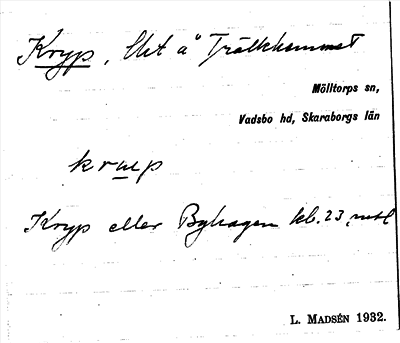 Kryp, Slät å Trälkhemmet
Mölltorps sn,
Vadsbo hd, Skaraborgs län
krup
Kryp eller Byhagen kb. 23,
L. MADSÉN 1932.